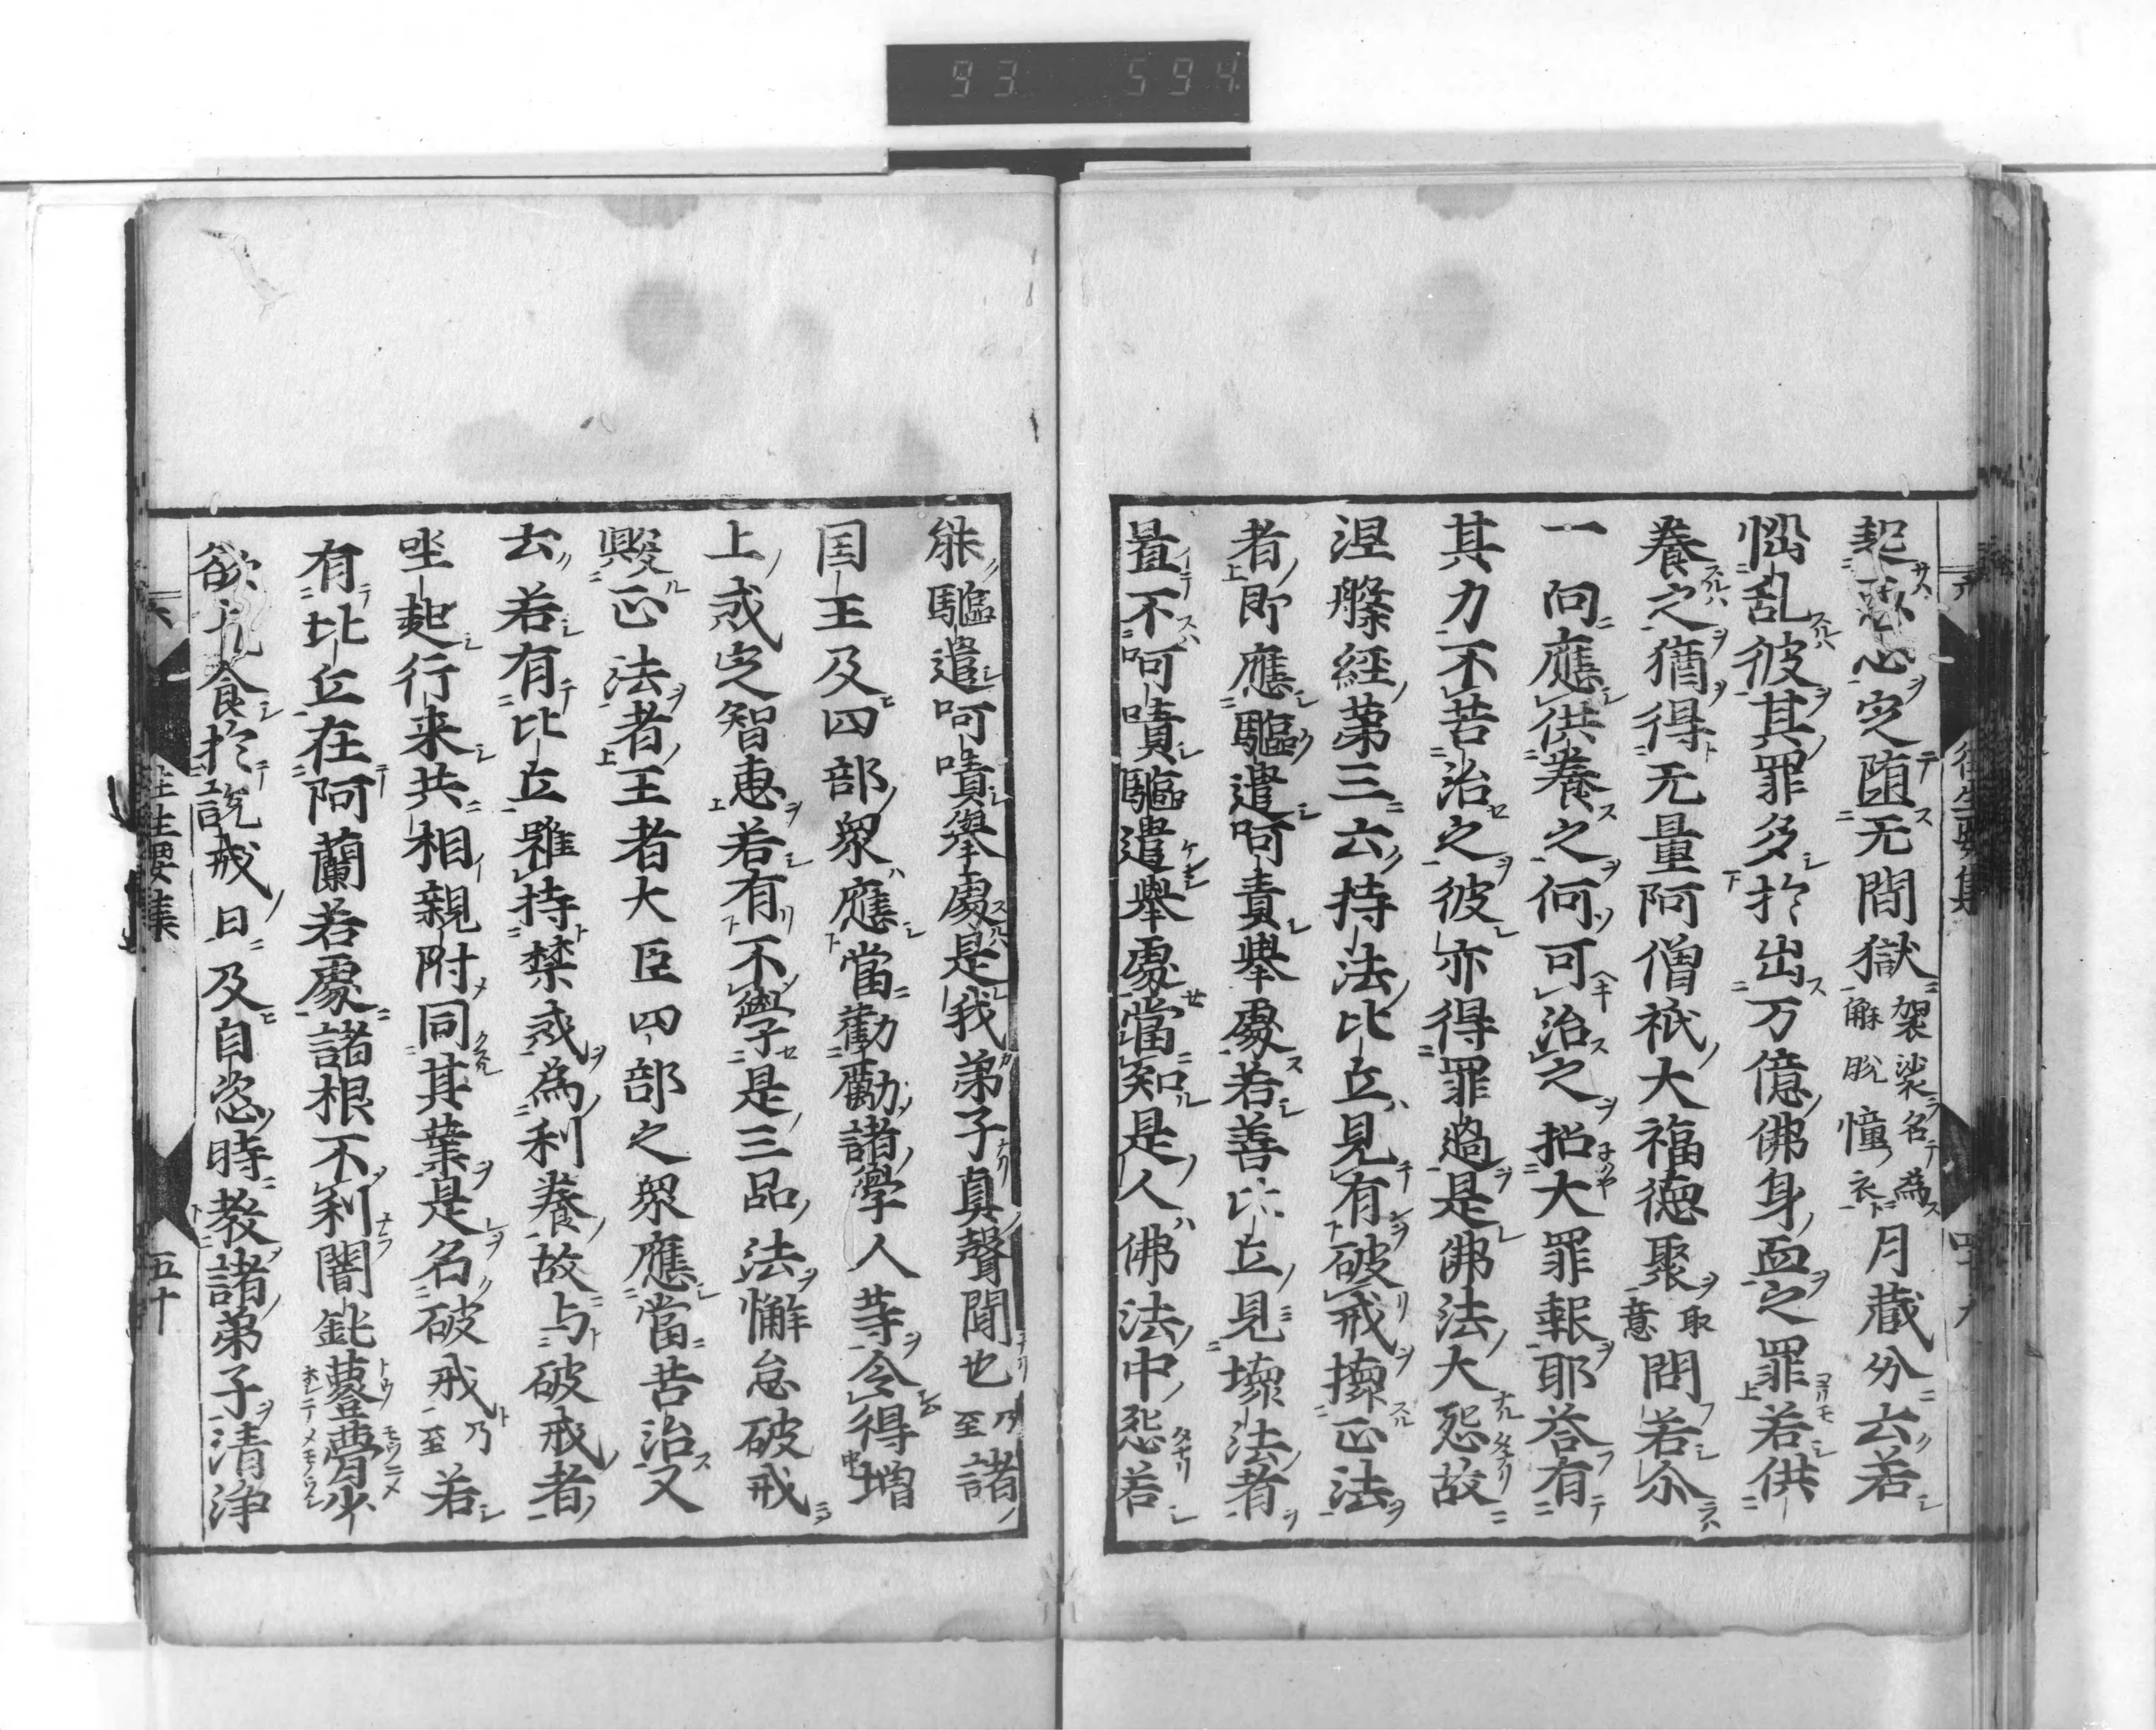 93 594
起惡心定墮无間獄袈裟名為解脫幢衣月藏分云若
惱乱彼其罪多於出万億佛身血之罪若供
養之猶得无量阿僧祇大福德聚取意問若尒
一向應供養之何可治之招大罪報耶荅有
其力不苦治之彼亦得罪過是佛法大怨故
涅槃經第三云持法比丘見有破戒壞正法
者即應驅遣呵責舉處若善比丘見壞法者
置不呵嘖驅遣舉處當知是人佛法中怨若
能驅遣呵嘖舉處是我弟子真聲聞也乃至諸
囯王及四部眾應當勸勵諸學人等令得增
上戒定智惠若有不學是三品法懈怠破戒
毀正法者王者大臣四部之眾應當苦治又
云若有比丘雖持禁戒為利養故与破戒者
坐起行来共相親附同其業是名破戒乃至若
有比丘在阿蘭若處諸根不利闇鈍䔲瞢少
欲乞食於說戒日及自恣時教諸弟子清淨
六 往生要集 四十九
六 往生要集 五十